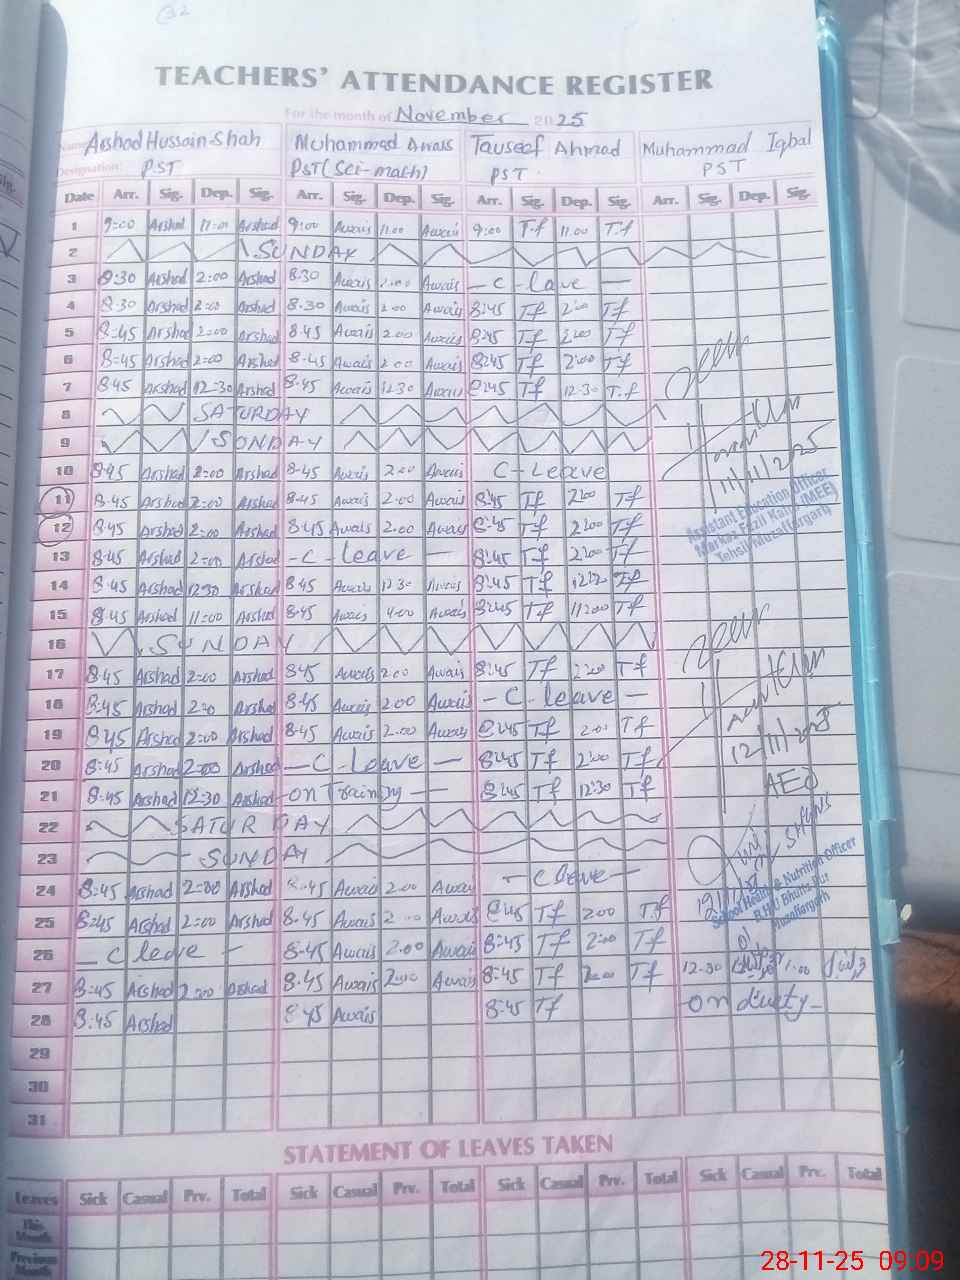 32
TEACHERS' ATTENDANCE REGISTER
For the month of November 2025
Name Arshad Hussain Shah Muhammad Awais Tauseef Ahmad Muhammad Iqbal
Designation: PST PST (Sci-math) PST PST
Date Arr. Sig. Dep. Sig. Arr. Sig. Dep. Sig. Arr. Sig. Dep. Sig. Arr. Sig. Dep. Sig.
1 9:00 Arshad 11:00 Arshad 9:00 Awais 11.00 Awais 9:00 T.f 11.00 T.f
2 SUNDAY
3 8:30 Arshad 2:00 Arshad 8.30 Awais 2.00 Awais - C - leave -
4 8:30 Arshad 2:00 Arshad 8.30 Awais 2.00 Awais 8:45 Tf 2:00 Tf
5 8:45 Arshad 2:00 Arshad 8.45 Awais 2.00 Awais 8:45 Tf 2:00 Tf
6 8:45 Arshad 2:00 Arshad 8.45 Awais 2.00 Awais 8:45 Tf 2:00 Tf
7 8:45 Arshad 12:30 Arshad 8.45 Awais 12.30 Awais 8:45 Tf 12:30 T.f
8 SATURDAY
9 SUNDAY
10 8:45 Arshad 2:00 Arshad 8-45 Awais 2.00 Awais C - Leave
11 8:45 Arshad 2:00 Arshad 8.45 Awais 2.00 Awais 8:45 Tf 2:00 Tf
11/11/2025
Assistant Education Officer
Markaz (MEE)
Tehsil Muzaffargarh
12 8:45 Arshad 2:00 Arshad 8.45 Awais 2.00 Awais 8:45 Tf 2:00 Tf
13 8:45 Arshad 2:00 Arshad - C - leave - 8:45 Tf 2:00 Tf
14 8:45 Arshad 12:30 Arshad 8.45 Awais 12.30 Awais 8:45 Tf Tf
15 8:45 Arshad 11:00 Arshad 8.45 Awais Awais 8:45 Tf 11:00 Tf
16 SUNDAY
17 8:45 Arshad 2:00 Arshad 8.45 Awais 2.00 Awais 8:45 Tf 2:00 Tf
18 8:45 Arshad 2:00 Arshad 8.45 Awais 2.00 Awais - C leave -
19 8:45 Arshad 2:00 Arshad 8.45 Awais 2.00 Awais 8:45 Tf 2:00 Tf
12/11/2025
20 8:45 Arshad 2:00 Arshad - C - Leave - 8:45 Tf 2:00 Tf
AEO
21 8:45 Arshad 12:30 Arshad - on Training - 8:45 Tf 12:30 Tf
22 SATURDAY
23 SUNDAY
School Health & Nutrition Officer
Muzaffargarh
24 8:45 Arshad 2:00 Arshad 8.45 Awais 2.00 Awais - C leave -
25 8:45 Arshad 2:00 Arshad 8.45 Awais 2.00 Awais 8:45 Tf 2:00 Tf
26 - C leave - 8.45 Awais 2.00 Awais 8:45 Tf 2:00 Tf
27 8:45 Arshad 2:00 Arshad 8.45 Awais 2.00 Awais 8:45 Tf 2:00 Tf 12:30 1:00
28 8:45 Arshad 8.45 Awais 8:45 Tf on duety -
29
30
31
STATEMENT OF LEAVES TAKEN
Leaves Sick Casual Prv. Total Sick Casual Prv. Total Sick Casual Prv. Total Sick Casual Prv. Total
This Month
Previous Month
28-11-25 09:09